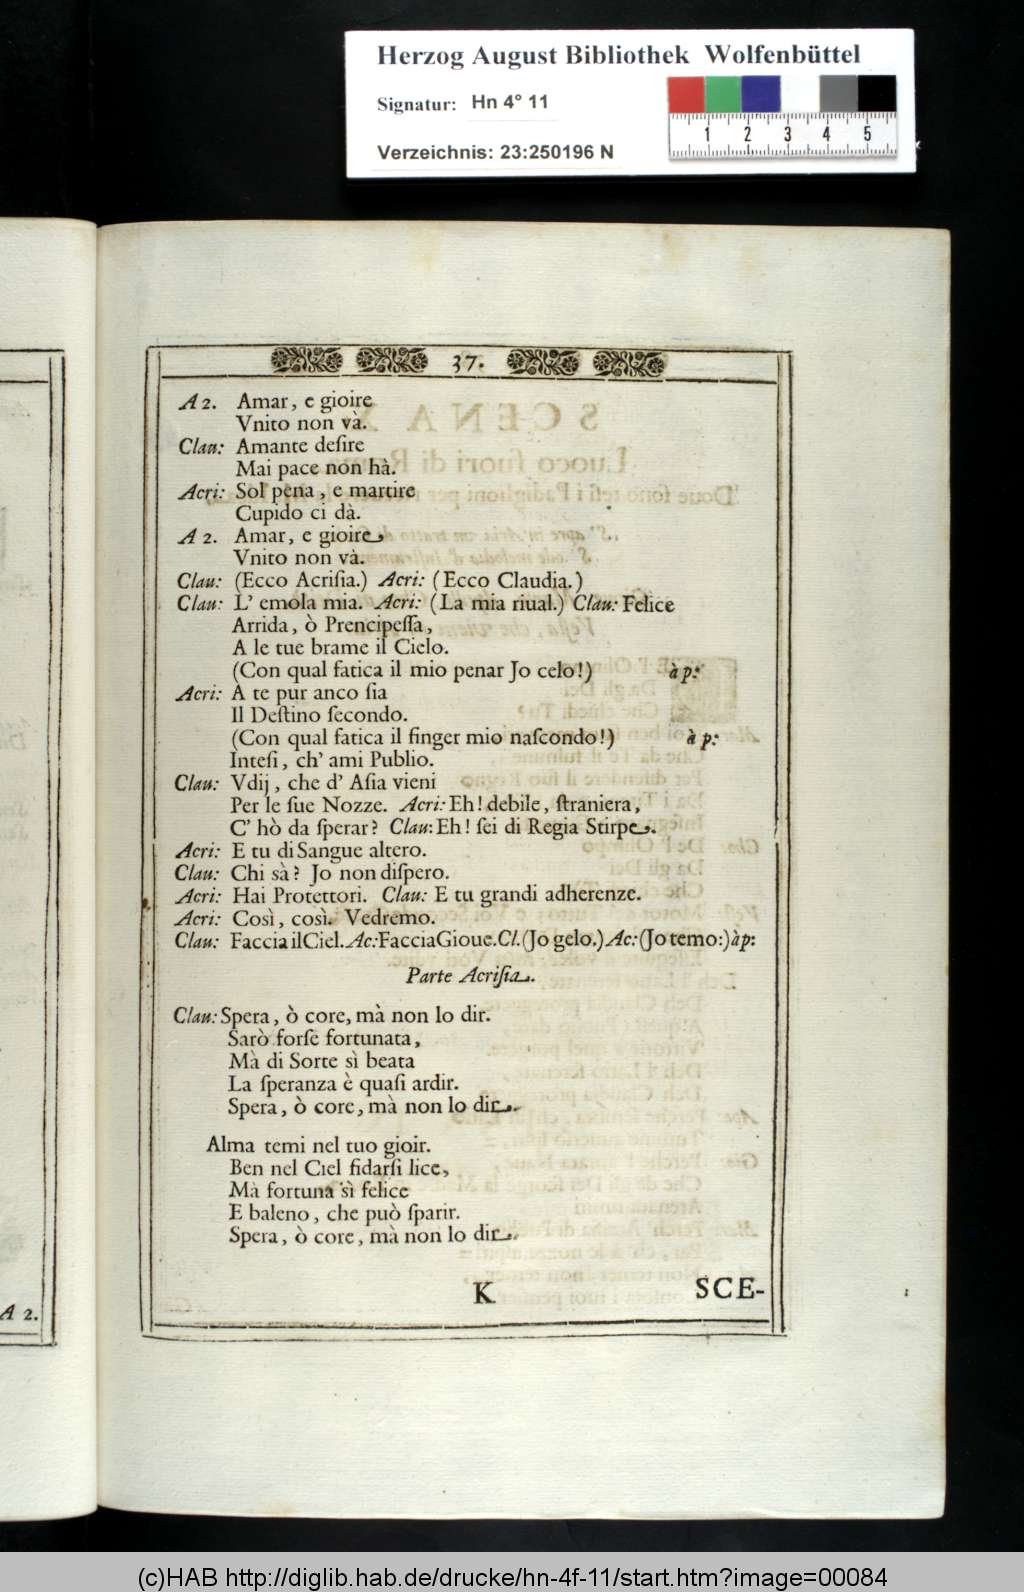 Herzog August Bibliothek Wolfenbüttel
Signatur: Hn 4° 11
Verzeichnis: 23:250196 N
1 2 3 4 5
37.
A 2. Amar, e gioire
Vnito non và.
Clau: Amante deſire
Mai pace non hà.
Acri: Sol pena, e martire
Cupido ci dà.
A 2. Amar, e gioire
Vnito non và.
Clau: (Ecco Acriſia.) Acri: (Ecco Claudia.)
Clau: L' emola mia. Acri: (La mia riual.) Clau: Felice
Arrida, ò Prencipeſſa,
A le tue brame il Cielo.
(Con qual fatica il mio penar Jo celo!) à p:
Acri: A te pur anco ſia
Il Deſtino ſecondo.
(Con qual fatica il finger mio naſcondo!) à p:
Inteſi, ch' ami Publio.
Clau: Vdij, che d' Aſia vieni
Per le ſue Nozze. Acri: Eh! debile, ſtraniera,
C' hò da ſperar? Clau: Eh! ſei di Regia Stirpe.
Acri: E tu di Sangue altero.
Clau: Chi sà? Jo non diſpero.
Acri: Hai Protettori. Clau: E tu grandi adherenze.
Acri: Così, così. Vedremo.
Clau: Faccia il Ciel. Ac: Faccia Gioue. Cl. (Jo gelo.) Ac: (Jo temo:) àp:
Parte Acriſia.
Clau: Spera, ò core, mà non lo dir.
Sarò forſe fortunata,
Mà di Sorte sì beata
La ſperanza è quaſi ardir.
Spera, ò core, mà non lo dir.
Alma temi nel tuo gioir.
Ben nel Ciel fidarſi lice,
Mà fortuna sì felice
E baleno, che può ſparir.
Spera, ò core, mà non lo dir.
K
SCE-
A 2.
(c)HAB http://diglib.hab.de/drucke/hn-4f-11/start.htm?image=00084